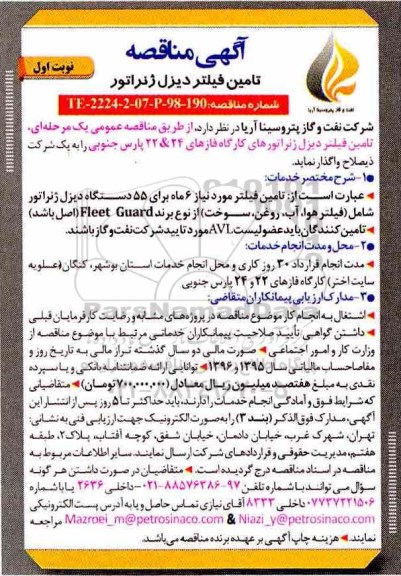 آگهی مناقصه
نوبت اول
تامین فیلتر دیزل ژنراتور
نفت و گاز پتروسینا آریا
شماره مناقصه: TE-2224-2-07-P-98-190
شرکت نفت و گاز پتروسینا آریا در نظر دارد، از طریق مناقصه عمومی یک مرحله‌ای،
تامین فیلتر دیزل ژنراتورهای کارگاه فازهای ۲۴&۲۲ پارس جنوبی را به یک شرکت
ذیصلاح واگذار نماید.
۱-شرح مختصر خدمات:
عبارت است از: تامین فیلتر مورد نیاز ۶ ماه برای ۵۵ دستگاه دیزل ژنراتور
شامل (فیلتر هوا، آب، روغن، سوخت) از نوع برند Fleet Guard (اصل باشد)
تامین کنندگان باید عضو لیست AVL مورد تایید شرکت نفت و گاز باشند.
۲-محل و مدت انجام خدمات:
مدت انجام قرارداد ۳۰ روز کاری و محل انجام خدمات استان بوشهر، کنگان (علویه
سایت اختر) کارگاه فازهای ۲۲ و ۲۴ پارس جنوبی
۳-مدارک ارزیابی پیمانکاران متقاضی:
اشتغال به انجام کار موضوع مناقصه در پروژه‌های مشابه و رضایت کارفرمایان قبلی
داشتن گواهی تأیید صلاحیت پیمانکاران خدماتی مرتبط با موضوع مناقصه از
وزارت کار و امور اجتماعی صورت مالی دو سال گذشته تراز مالی به تاریخ روز و
مفاصاحساب مالیاتی سال ۱۳۹۵ و ۱۳۹۶ توانایی ارائه ضمانتنامه بانکی و یا سپرده
نقدی به مبلغ هفتصد میلیون ریال معادل (۷۰۰,۰۰۰,۰۰۰ تومان) متقاضیانی
که شرایط فوق و آمادگی انجام خدمات را دارند، باید حداکثر تا ۵ روز پس از انتشار این
آگهی، مدارک فوق‌الذکر (بند ۳) را به صورت الکترونیک جهت ارزیابی فنی به نشانی:
تهران، شهرک غرب، خیابان دادمان، خیابان شفق، کوچه آفتاب، پلاک۲، طبقه
هفتم، مدیریت حقوقی و قراردادهای شرکت ارسال نمایند. سایر اطلاعات مربوط به
مناقصه در اسناد مناقصه درج گردیده است. متقاضیان در صورت داشتن هر گونه
سوال می توانند با شماره تلفن ۹۷-۸۸۵۷۶۳۸۶-۰۲۱ داخلی ۲۶۳۶ یا با شماره
۰۷۷۳۷۲۲۱۵۰۶ داخلی ۸۳۳۳ آقای نیازی تماس حاصل و یا به آدرس پست الکترونیکی
Mazroei_m@petrosinaco.com & Niazi_y@petrosinaco.com مراجعه
نمایند. هزینه چاپ آگهی بر عهده برنده مناقصه می‌باشد.